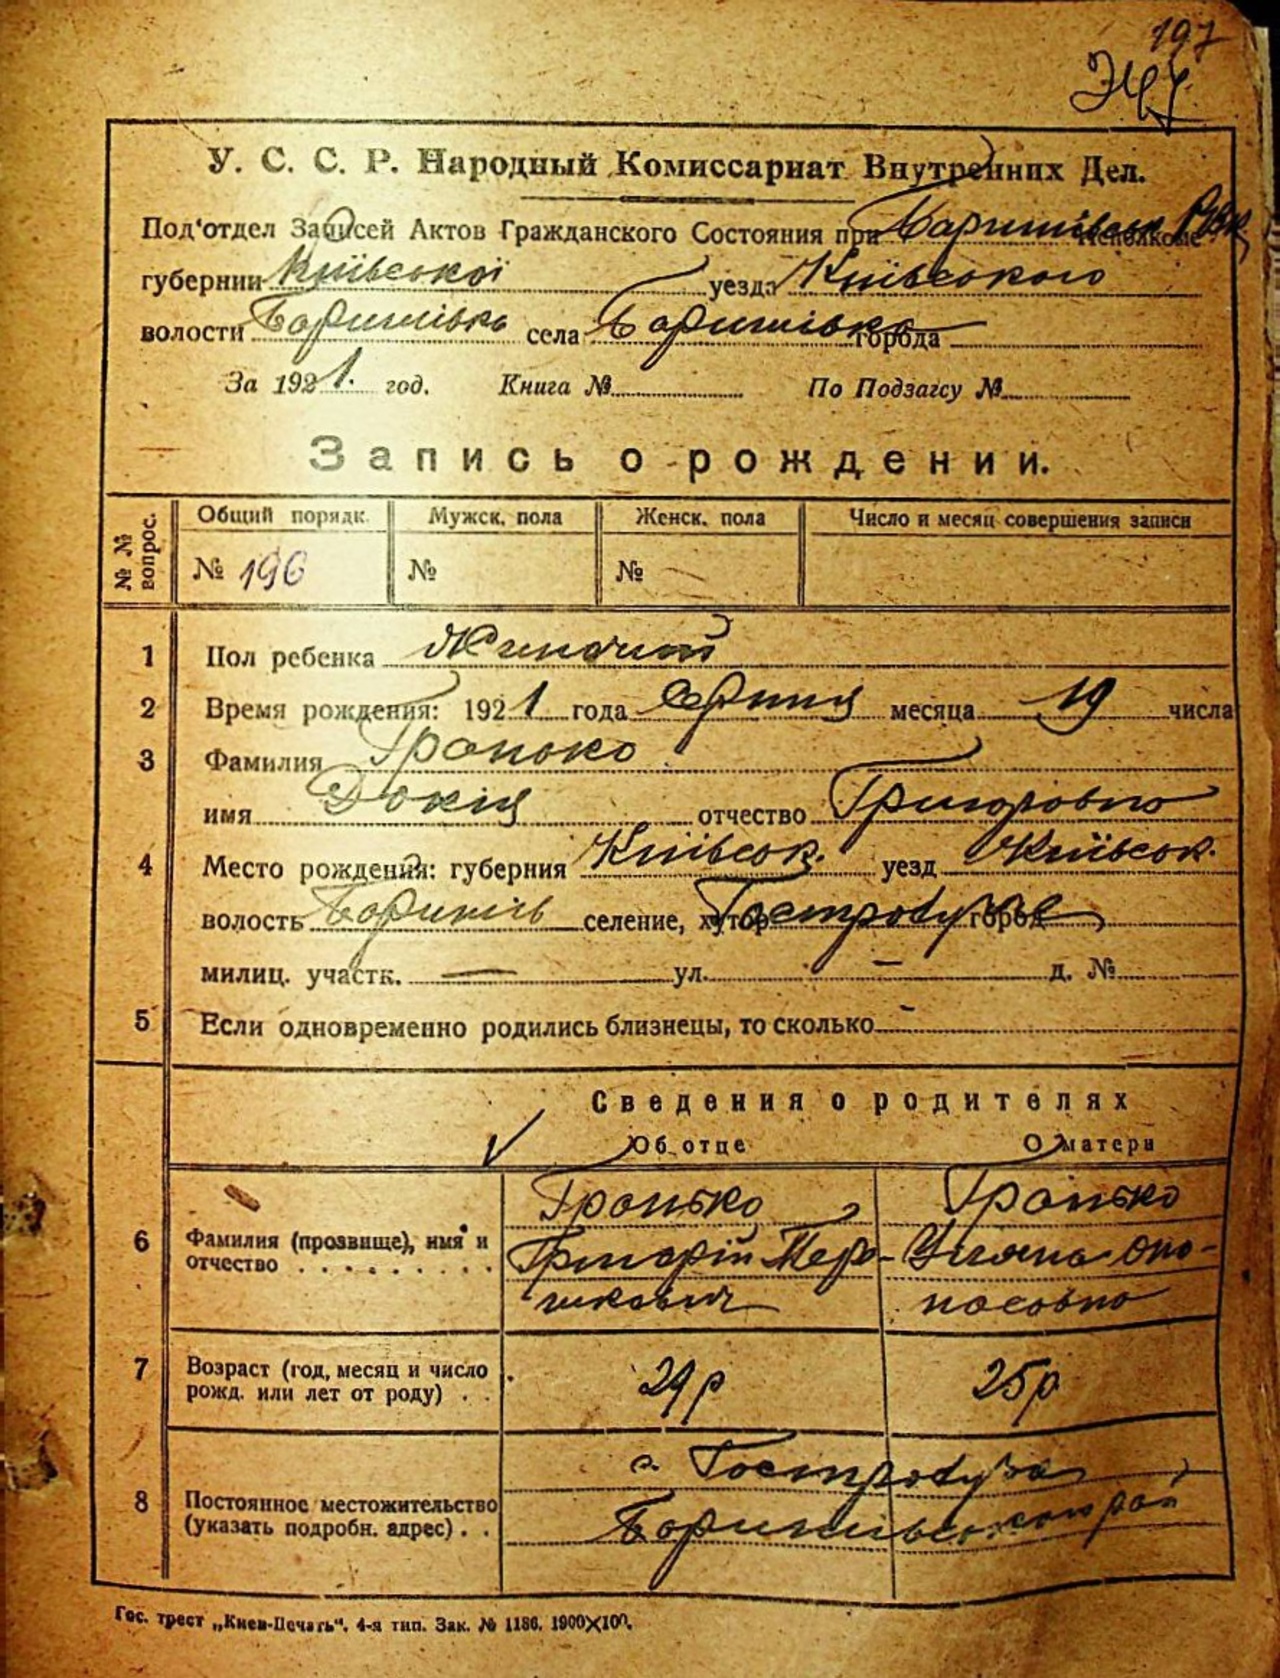 197
У. С. С. Р. Народный Комиссариат Внутренних Дел.
Под'отдел Записей Актов Гражданского Состояния при Баришівськ РВК Исполкоме
губернии Київської уезда Київського
волости Баришівка села Баришівка города
За 1921. год. Книга № По Подзагсу №
Запись о рождении.
№№ вопрос. Общий порядк. Мужск. пола Женск. пола Число и месяц совершения записи
№ 196 № №
1 Пол ребенка Жиночий
2 Время рождения: 1921 года серпня месяца 19 числа
3 Фамилия Гронько
имя Докія отчество Григоровно
4 Место рождения: губерния Київськ. уезд Київськ.
волость Баришів селение, хутор город
милиц. участк. — ул. — д. №
5 Если одновременно родились близнецы, то сколько —
Сведения о родителях
Об отце О матери
6 Фамилия (прозвище), имя и отчество Гронько Гронько
Григорій Уляна Опо-
насовно
7 Возраст (год, месяц и число рожд. или лет от роду) 29р 25р
8 Постоянное местожительство (указать подробн. адрес) с.
Баришівськ рай
Гос. трест „Киев-Печать“. 4-я тип. Зак. № 1186. 1900×100.